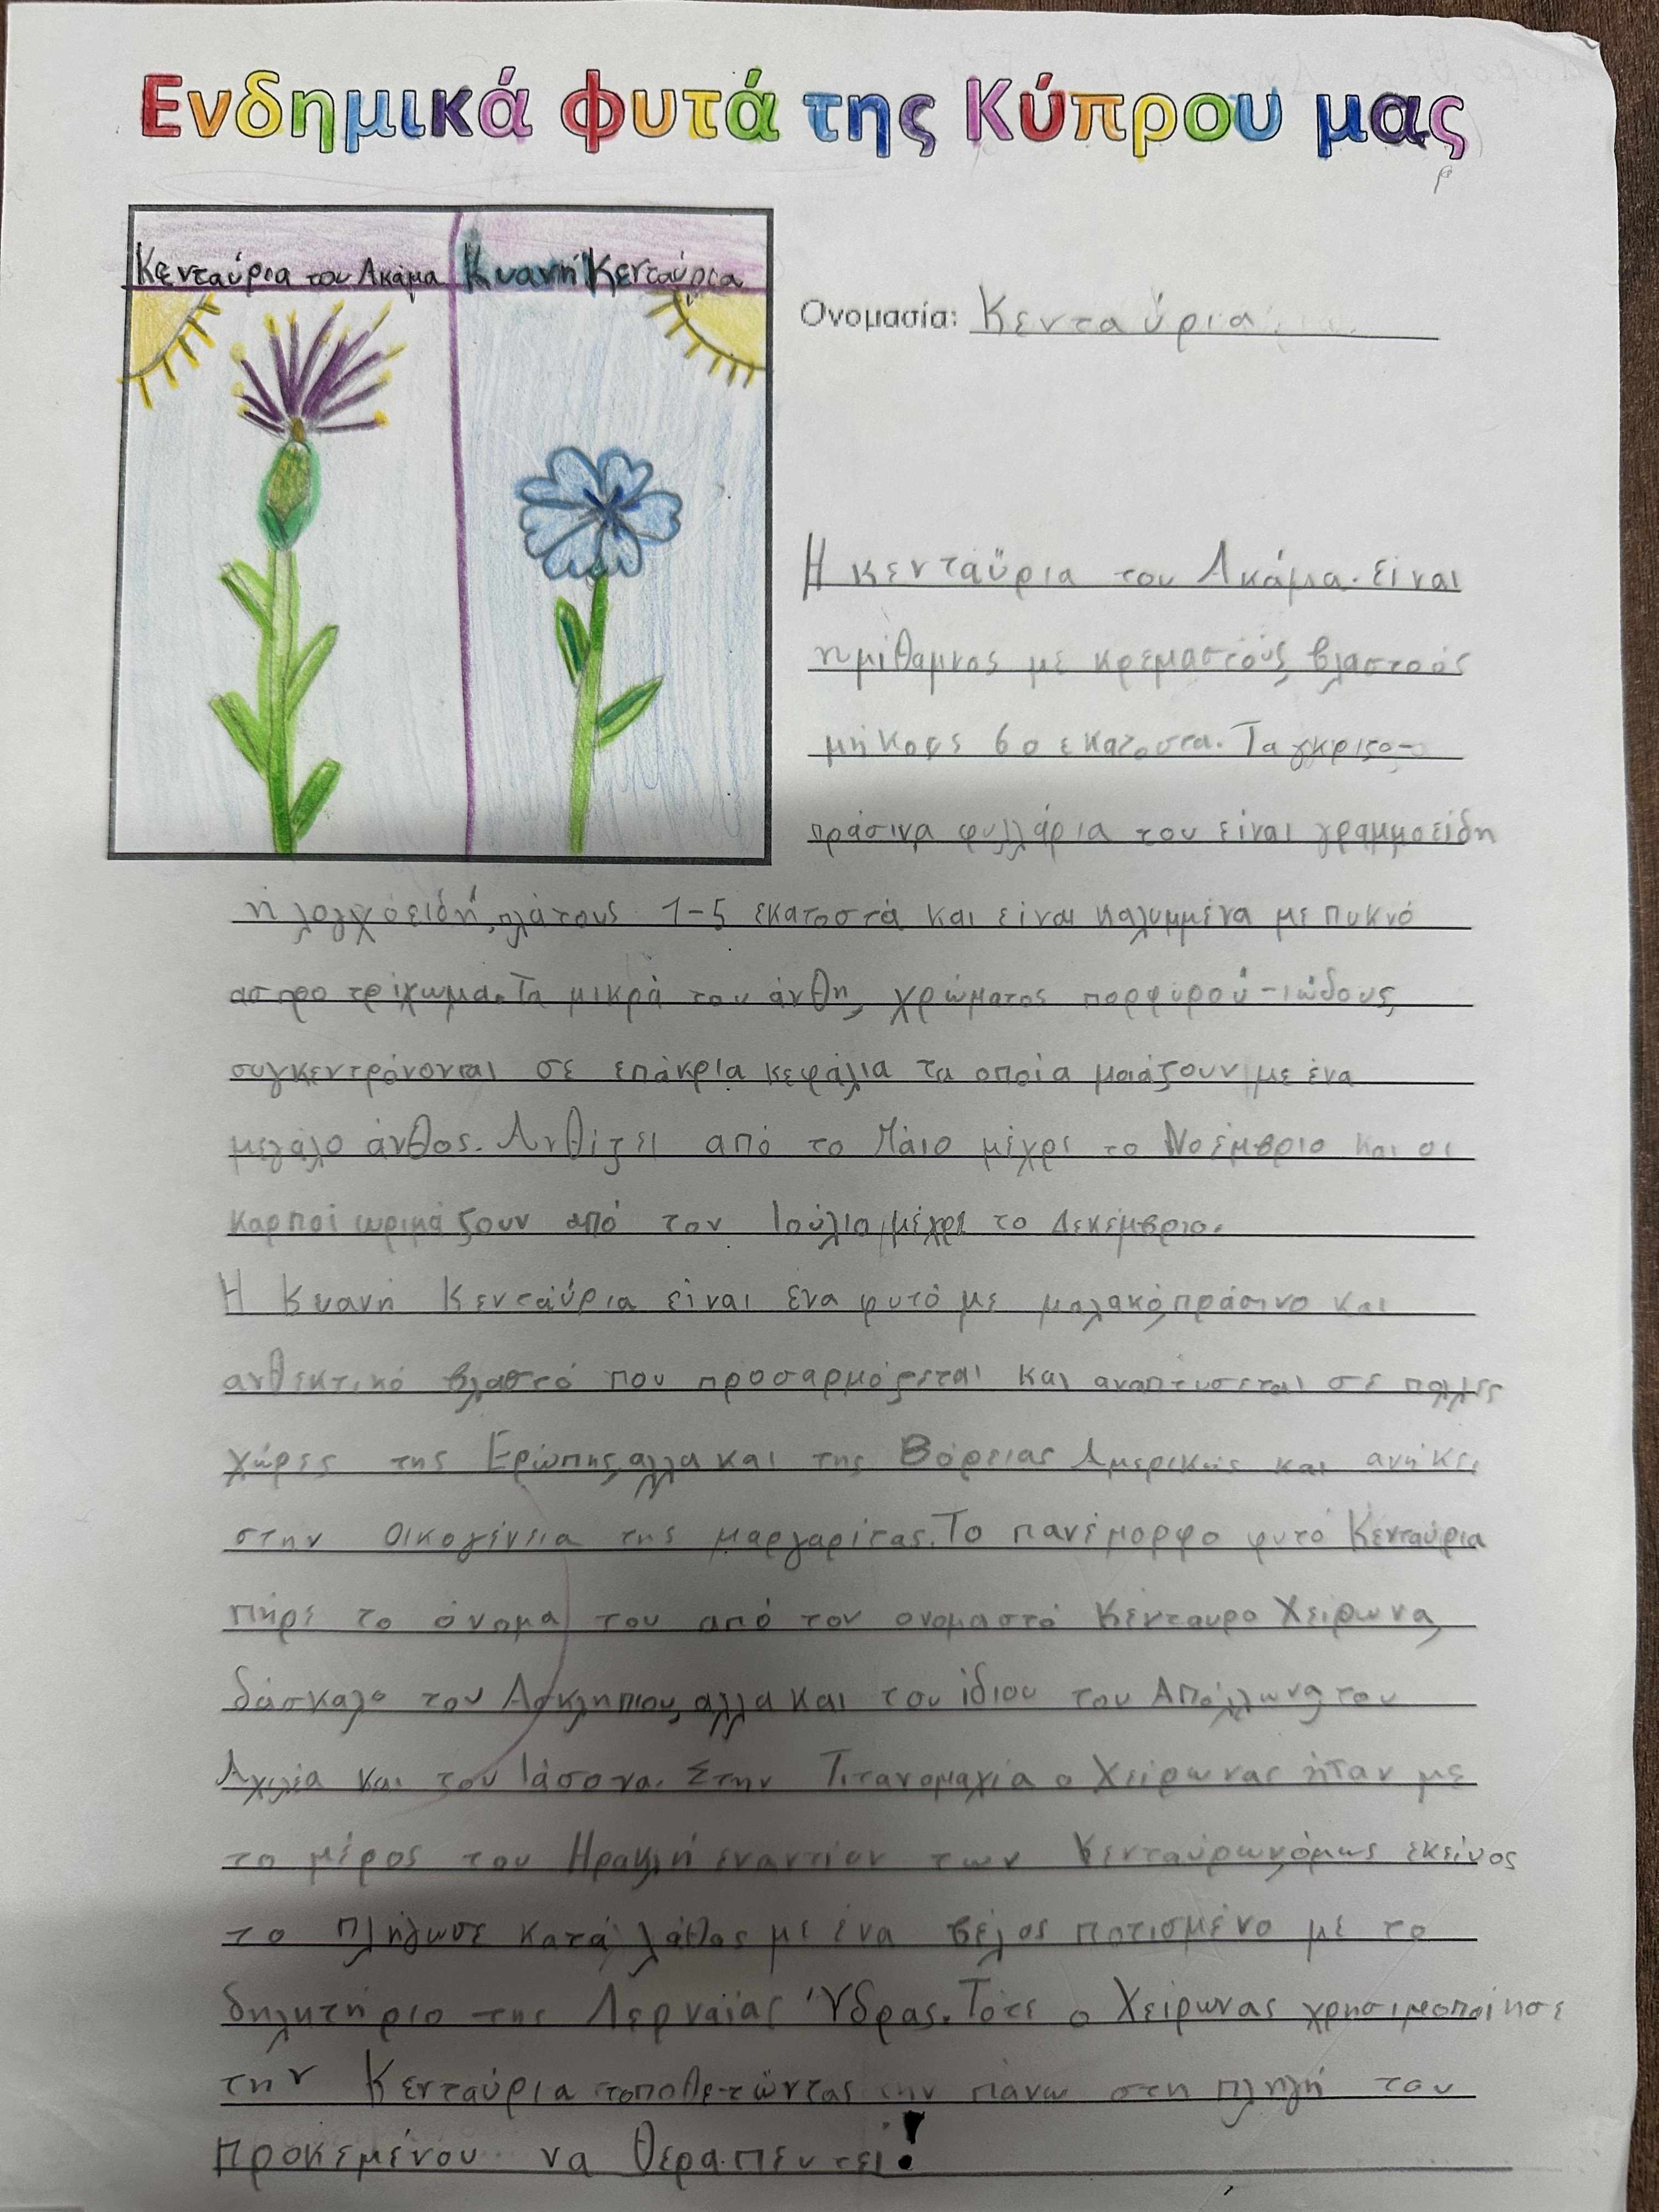 Ενδημικά φυτά της Κύπρου μας
Κενταύρια του Ακάμα
Κυανή Κενταύρια
Ονομασία: Κενταύρια
Η κενταύρια του Ακάμα. είναι
ημίθαμνος με κρεμαστούς βλαστούς
μήκους 60 εκατοστα. Τα γκριζο-
πράσινα φυλλάρια του είναι γραμμοειδή
ή λογχόειδή, πλάτους 1-5 εκατοστά και είναι καλυμμένα με πυκνό
ασπρο τρίχωμα. Τα μικρά του άνθη, χρώματος πορφυρού-ιώδους,
συγκεντρόνονται σε επάκρια κεφάλια τα οποία μοιάζουν με ένα
μεγάλο άνθος. Ανθίζει από το Μάιο μέχρι το Νοέμβριο και οι
καρποί ωριμάζουν από τον Ιούλιο, μέχρι το Δεκέμβριο.
Η Κυανή Κενταύρια είναι ένα φυτό με μαλακό, πράσινο και
ανθεκτικό βλαστό που προσαρμόζεται και αναπτύσεται σε πολλές
χώρες της Ερώπης, αλλα και της Βόρειας Αμερικής και ανήκει
στην οικογένεια της μαργαρίτας. Το πανέμορφο φυτό Κενταύρια
πήρε το όνομα του από τον ονομαστό Κένταυρο Χείρωνα,
δάσκαλο του Ασκληπιου, αλλα και του ίδιου του Απόλλωνα, του
Αχιλέα και του Ιάσονα. Στην Τιτανομαχία ο Χείρωνας ήταν με
το μέρος του Ηρακλή εναντίον των Κενταύρων, όμως εκείνος
το πλήγωσε κατά λάθος με ένα βέλος ποτισμένο με το
δηλητήριο της Λερναίας Ύδρας. Τότε ο Χείρωνας χρησιμοποίησε
την Κενταύρια τοποθετώντας την πάνω στη πληγή του
προκεμένου να θεραπευτει!